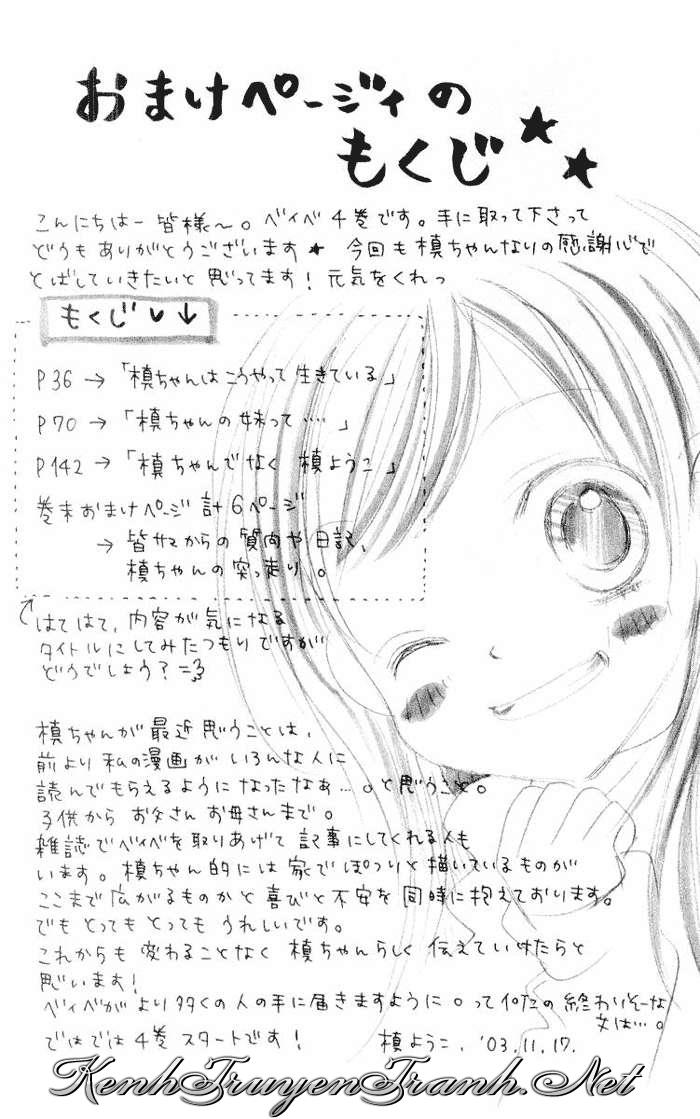 おまけページィの
もくじ★★
こんにちはー皆様〜。ベイベ4巻です。手に取って下さって
どうもありがとうございます★ 今回も槙ちゃんなりの感謝心で
とばしていきたいと思ってます！元気をくれっ
もくじ♥↓
P36→「槙ちゃんはこうやって生きている」
P70→「槙ちゃんの妹って‥‥」
P142→「槙ちゃんでなく 槙ようこ」
巻末おまけページ 計6ページ
→ 皆サマからの質問や日記、
槙ちゃんの突っ走り。
はてはて、内容が気になる
タイトルにしてみたつもりですが
どうでしょう？
槙ちゃんが最近思うことは、
前より私の漫画がいろんな人に
読んでもらえるようになったなぁ…。と思うこと。
子供からお父さんお母さんまで。
雑誌でベイベを取りあげて記事にしてくれる人も
います。槙ちゃん的には家でぽつりと描いているものが
ここまで広がるものかと喜びと不安を同時に抱えております。
でもとってもとってもうれしいです。
これからも変わることなく槙ちゃんらしく伝えていけたらと
思います！
ベイベがより多くの人の手に届きますように。って何だの終わりそーな
文は…。
ではでは4巻スタートです！ 槙ようこ. '03.11.17.
KenhTruyenTranh.Net